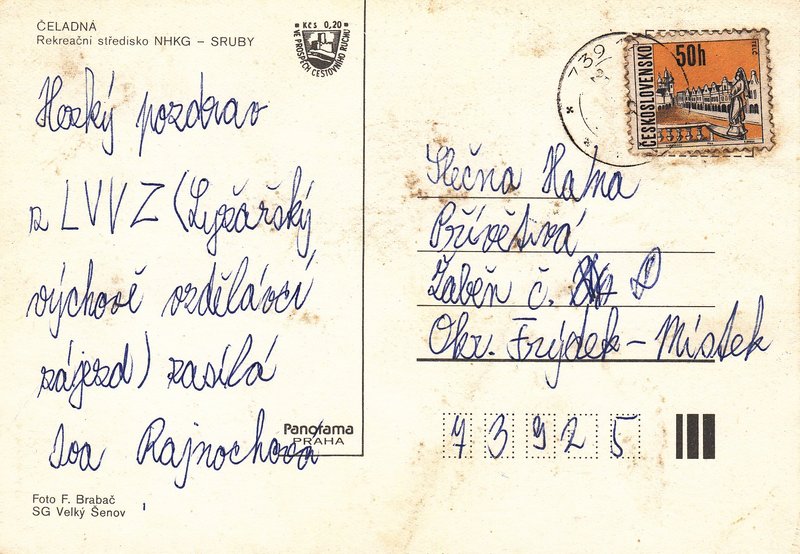 ČELADNÁ
Rekreační středisko NHKG – SRUBY
Kčs 0,20
VE PROSPĚCH CESTOVNÍHO RUCHU
Hezký pozdrav
z LVVZ (Lyžařský
výchově vzdělávcí
zájezd) zasílá
Iva Rajnochová
Panorama
PRAHA
Foto F. Brabač
SG Velký Šenov
1
739
ČESKOSLOVENSKO
50h
TELČ
Slečna Hana
Přívětivá
Žaběň č.
Okr. Frýdek – Místek
73925